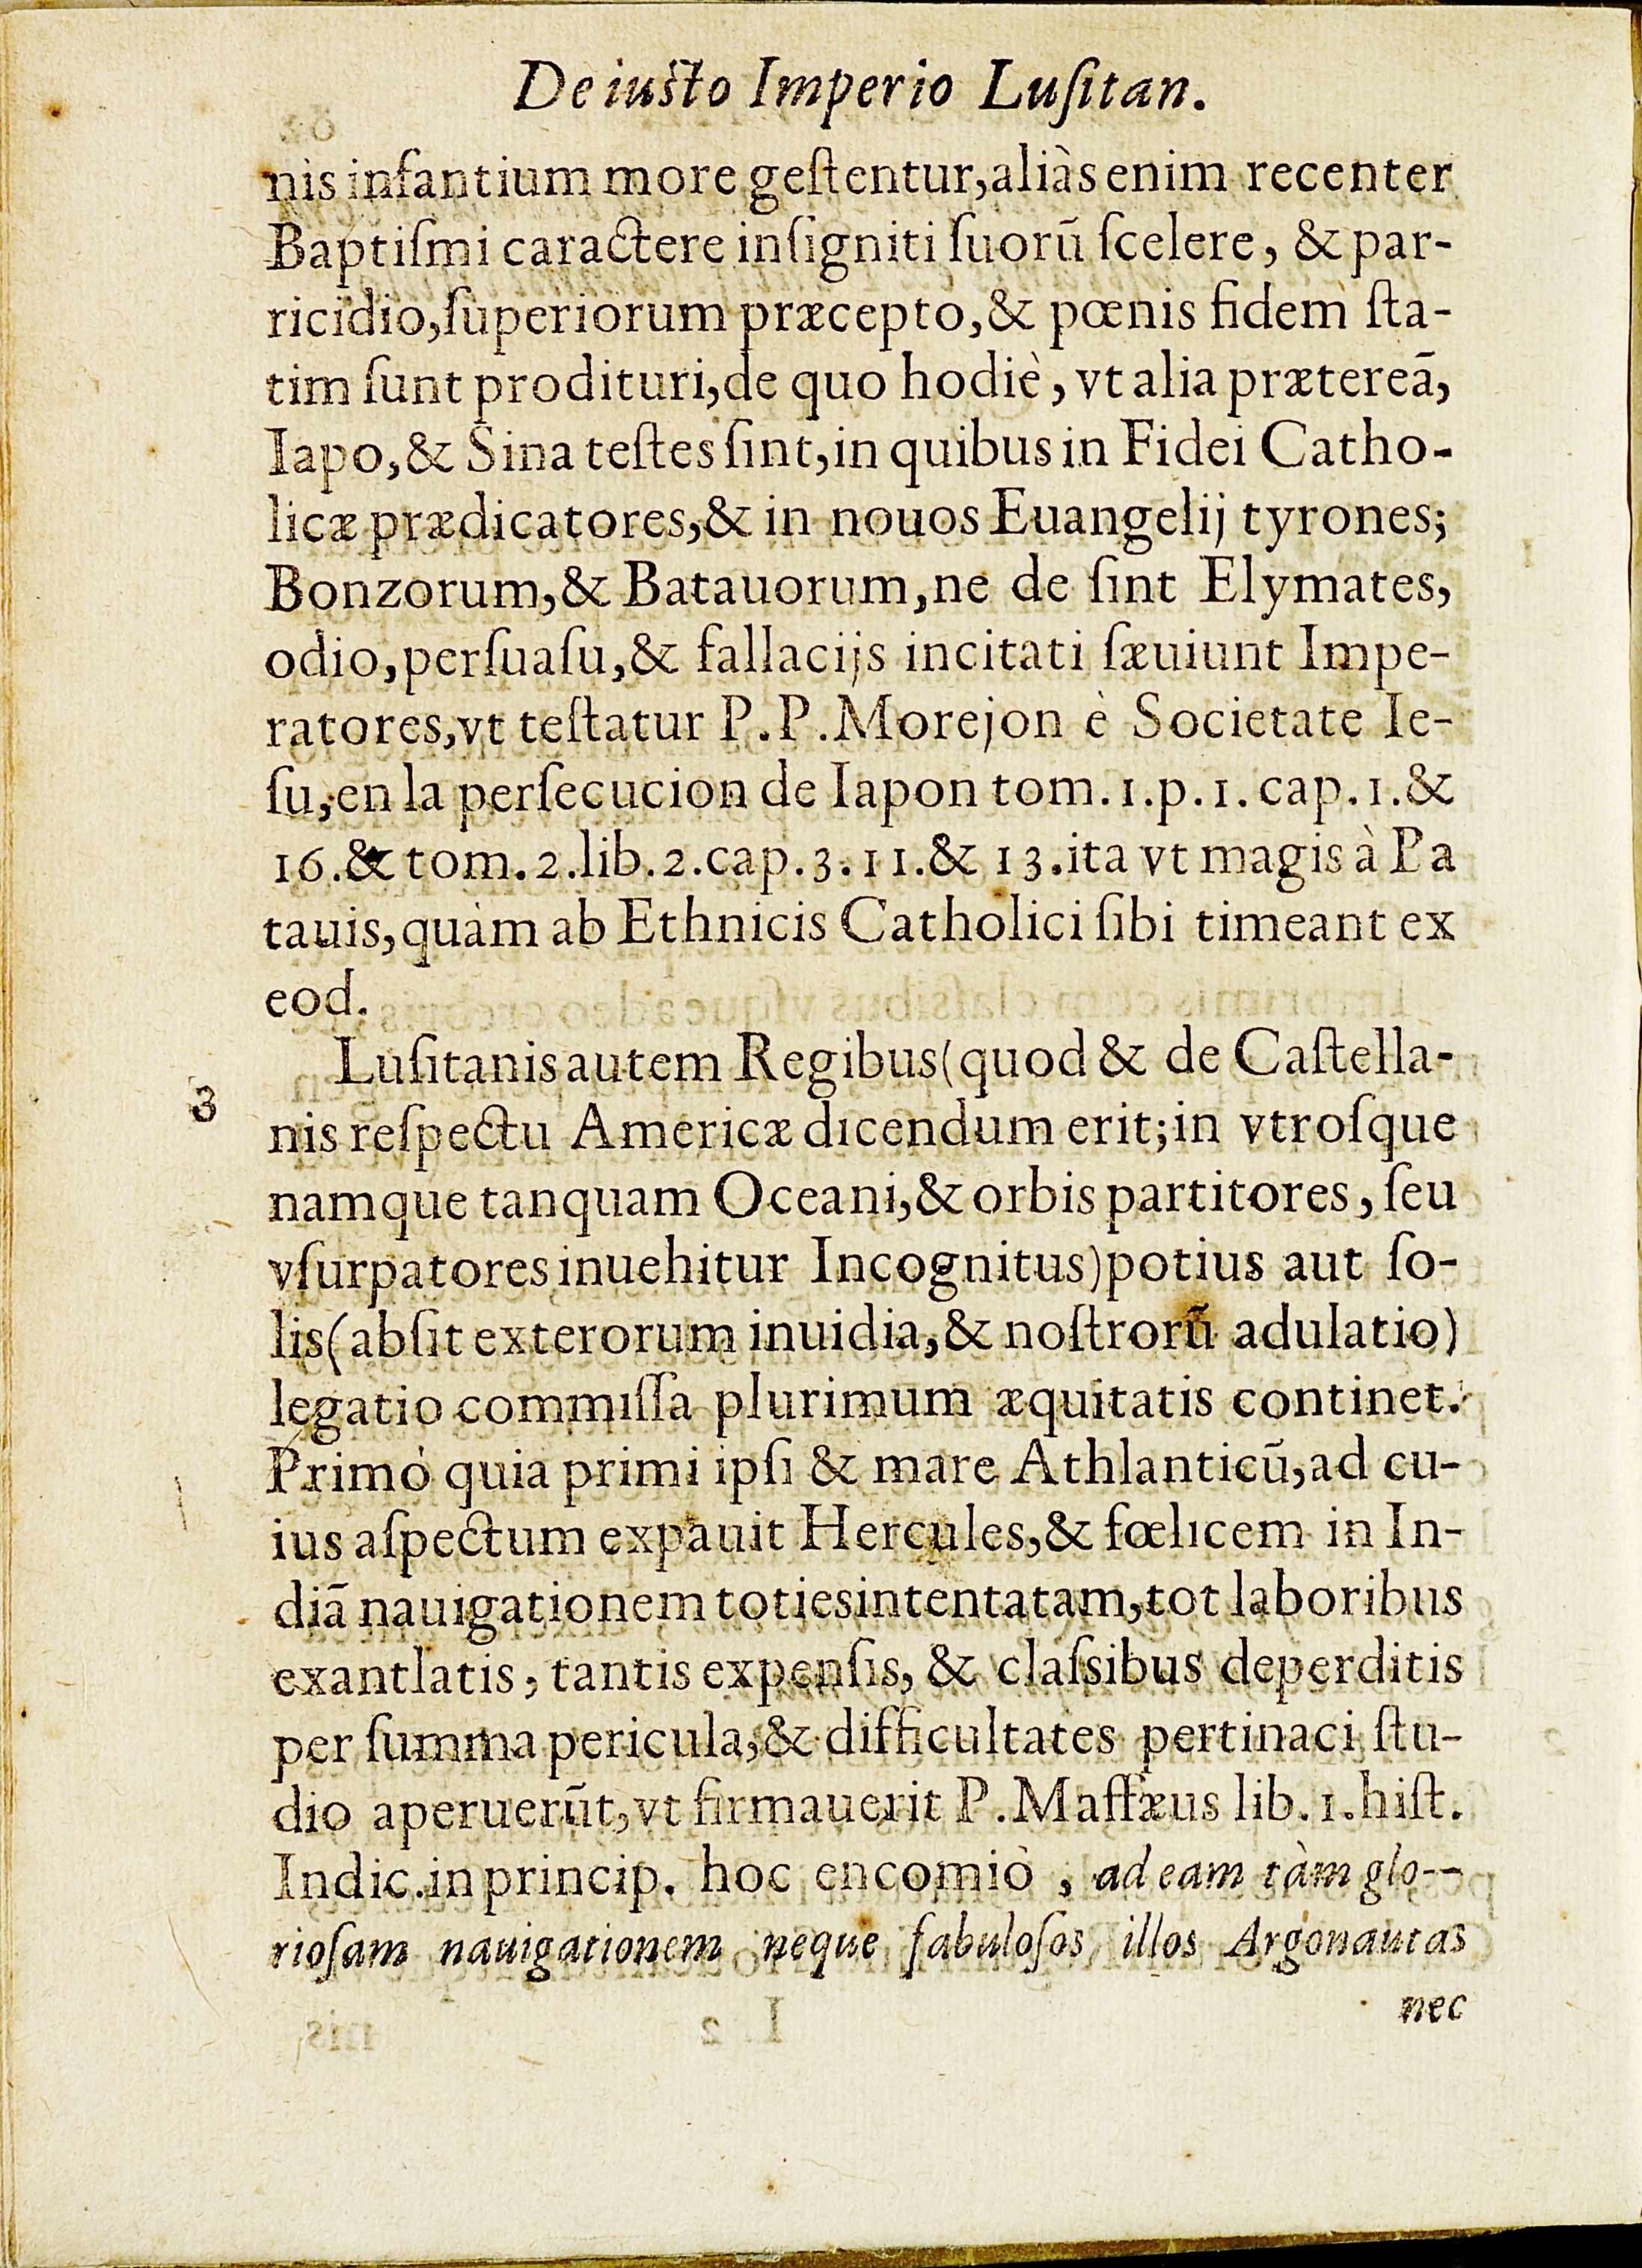 De iusto Imperio Luſitan.
nis infantium more geſtentur, aliàs enim recenter
Baptiſmi caractere inſigniti ſuorũ ſcelere, & par-
ricidio, ſuperiorum præcepto, & pœnis fidem ſta-
tim ſunt prodituri, de quo hodiè, vt alia prætereã,
Iapo, & Sina teſtes ſint, in quibus in Fidei Catho-
licæ prædicatores, & in nouos Euangelij tyrones;
Bonzorum, & Batauorum, ne de ſint Elymates,
odio, perſuaſu, & fallacijs incitati ſæuiunt Impe-
ratores, vt teſtatur P. P. Morejon è Societate Ie-
ſu, en la perſecucion de Iapon tom. 1. p. 1. cap. 1. &
16. & tom. 2. lib. 2. cap. 3. 11. & 13. ita vt magis à Pa
tauis, quàm ab Ethnicis Catholici ſibi timeant ex
eod.
Luſitanis autem Regibus (quod & de Caſtella-
3
nis reſpectu Americæ dicendum erit; in vtroſque
namque tanquam Oceani, & orbis partitores, ſeu
vſurpatores inuehitur Incognitus) potius aut ſo-
lis (abſit exterorum inuidia, & noſtrorũ adulatio)
legatio commiſſa plurimum æquitatis continet.
Primò quia primi ipſi & mare Athlanticũ, ad cu-
ius aſpectum expauit Hercules, & fœlicem in In-
diã nauigationem totiesintentatam, tot laboribus
exantlatis, tantis expenſis, & claſsibus deperditis
per ſumma pericula, & difficultates pertinaci ſtu-
dio aperuerũt, vt firmauerit P. Maffæus lib. 1. hiſt.
Indic. in princip. hoc encomiò, ad eam tàm glo--
rioſam nauigationem neque fabuloſos illos Argonautas
nec